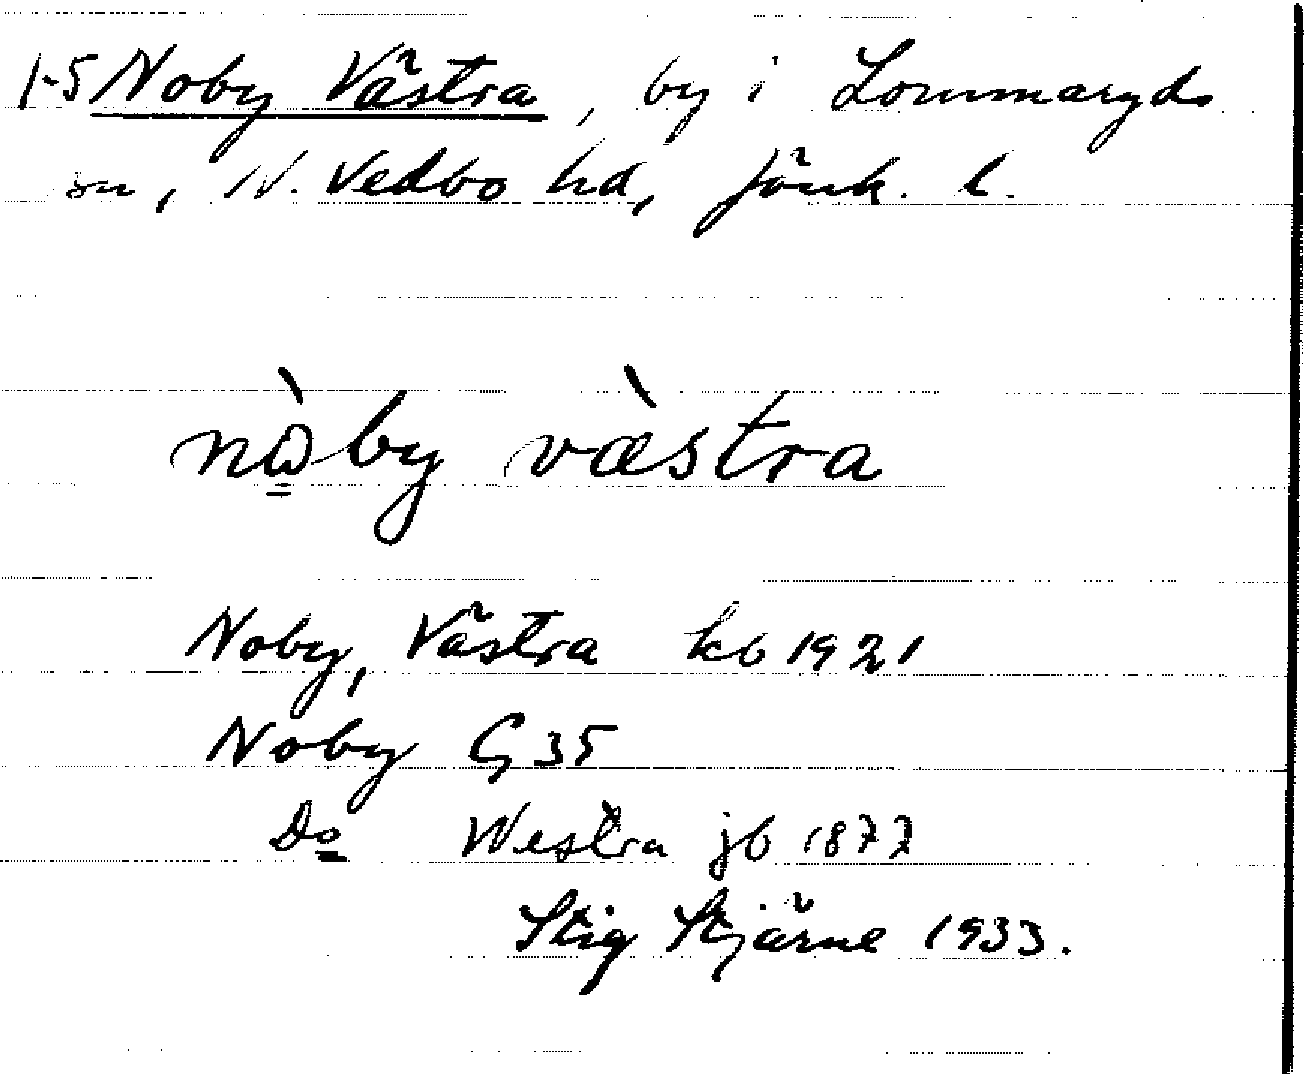 1-5 Noby Västra, by i Lommaryds
sn, N. Vedbo hd, Jönk. l.
nὼ̳by væ̀stra
Noby, Västra kb 1921
Noby G 35
Do Westra jb 1877
Stig Stjärne 1933.